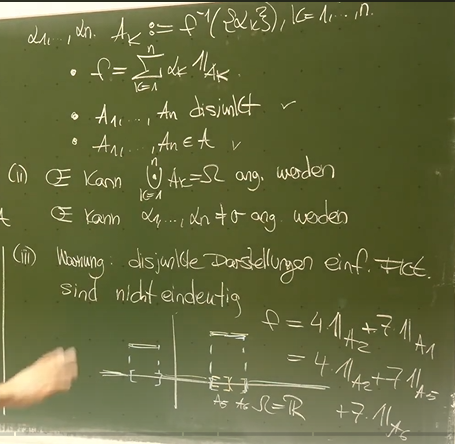 α1,..., αn. AK := f⁻¹({αK}), K=1,...,n.
• f = ∑_{K=1}^{n} αK 𝟙_{AK}.
• A1,..., An disjunkt ✓
• A1,..., An ∈ A ✓
(ii) Œ kann ⋃_{K=1}^{n} AK = Ω ang. werden
Œ kann α1,..., αn ≠ 0 ang. werden
(iii) Warnung: disjunkte Darstellungen einf. Fkt.
sind nicht eindeutig
f = 4·𝟙_{A2} + 7·𝟙_{A1}
= 4·𝟙_{A2} + 7·𝟙_{A5}
A5 A6 Ω = ℝ + 7·𝟙_{A6}